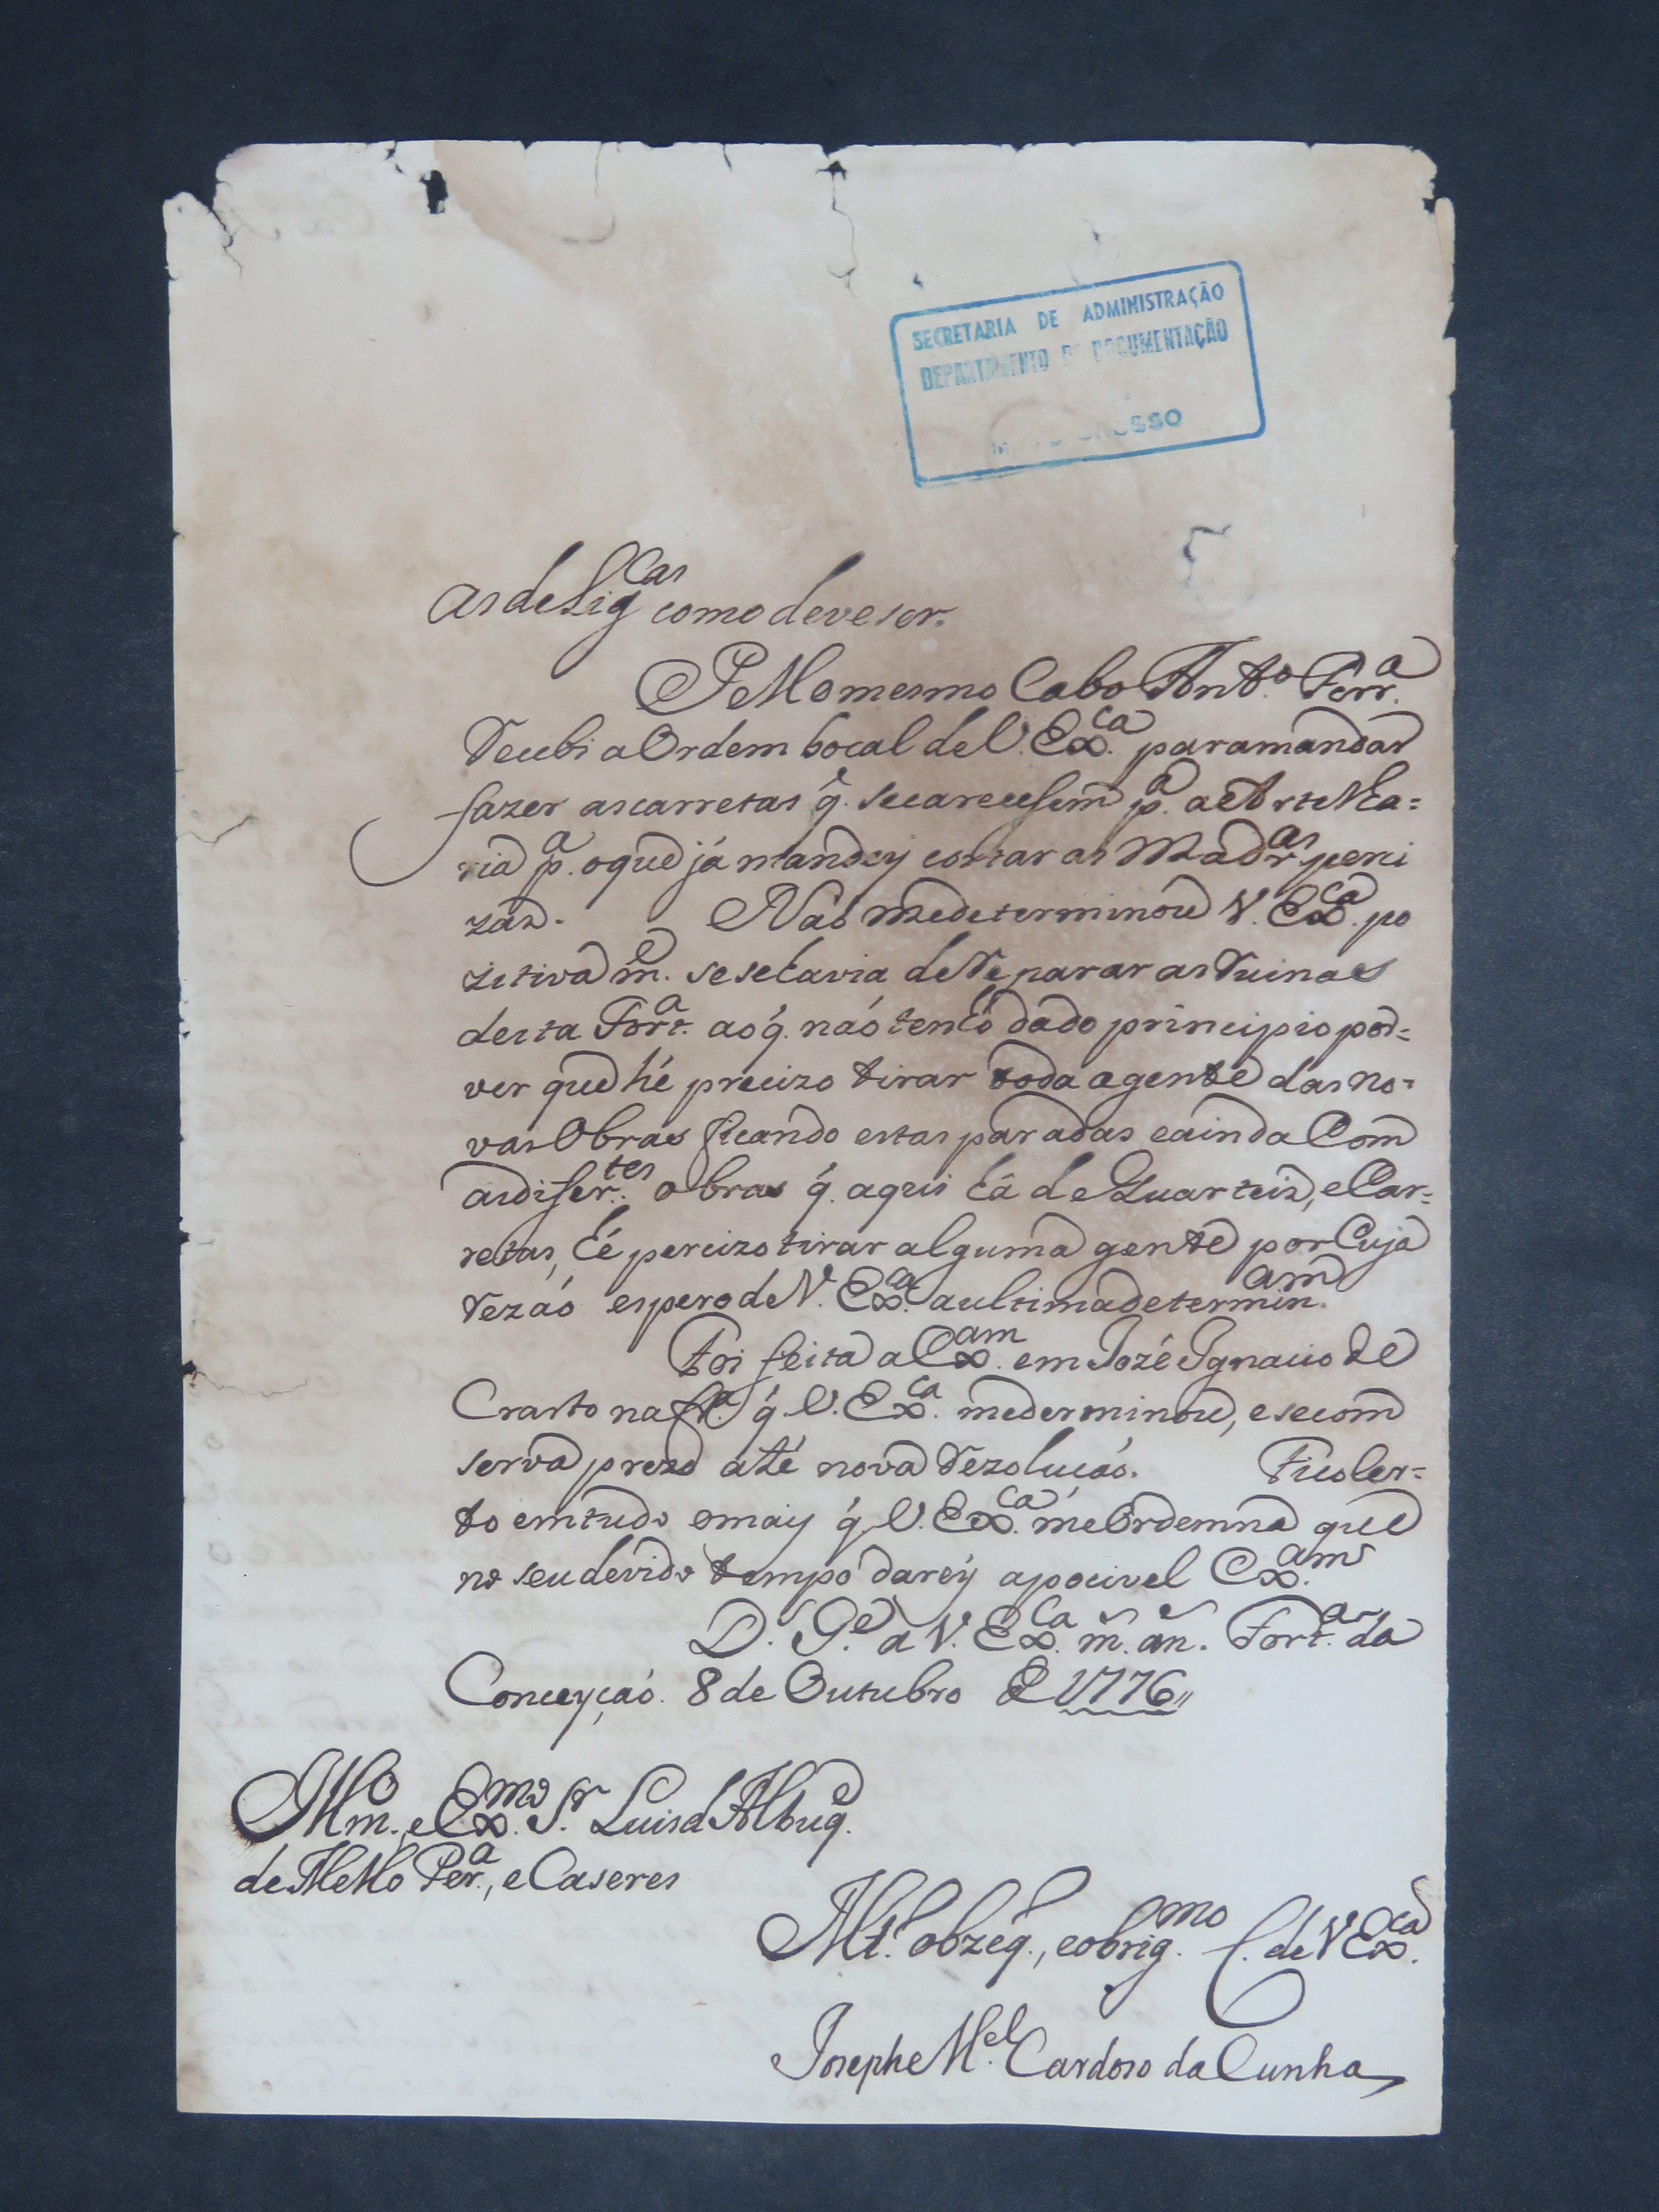 SECRETARIA DE ADMINISTRAÇÃO
DEPARTAMENTO DE DOCUMENTAÇÃO
MATO GROSSO
as delig.cas como deve ser.
Pello mesmo Cabo Ant.o Ferr.a
Recebi a Ordem bocal de V. Ex.ca para mandar
fazer as carretas q̃. se carecesem p.a a Artelha=
ria p.a o que já mandey cortar as Madr.as perci
zas. Não me determinou V. Ex.ca po
zitivam.e se se havia de Reparar as Ruinas
desta Fort.a ao q̃. não tenho dado principio por=
ver que hé precizo tirar toda a gente das no=
vas Obras ficando estas paradas e ainda Com
as difer.tes obras q̃. aqui há de Quarteis, e Car=
retas, hé percizo tirar alguma gente por Cuja
Rezaó espero de V. Ex.ca a ultima determin.am
Foi feita a Ex.am em Jozé Ignacio de
Crasto na fr.a q̃. V. Ex.ca me derminou, e se com
serva prezo até nova Rezolucaó. Fico Cer=
to em tudo o mais q̃ V. Ex.ca me Ordemna que
no seu devido tempo darey a pocivel Ex.am
D.s G.e a V. Ex.ca m.s an.s Fort.a da
Conceyçaó. 8 de Outubro de 1776
Illm.o e Ex.mo S.r Luis d'Albuq.e
de Mello Per.a, e Caseres
M.t.o obzeq.e, e obrig.mo C. de V Ex.ca
Josephe M.el Cardoso da Cunha